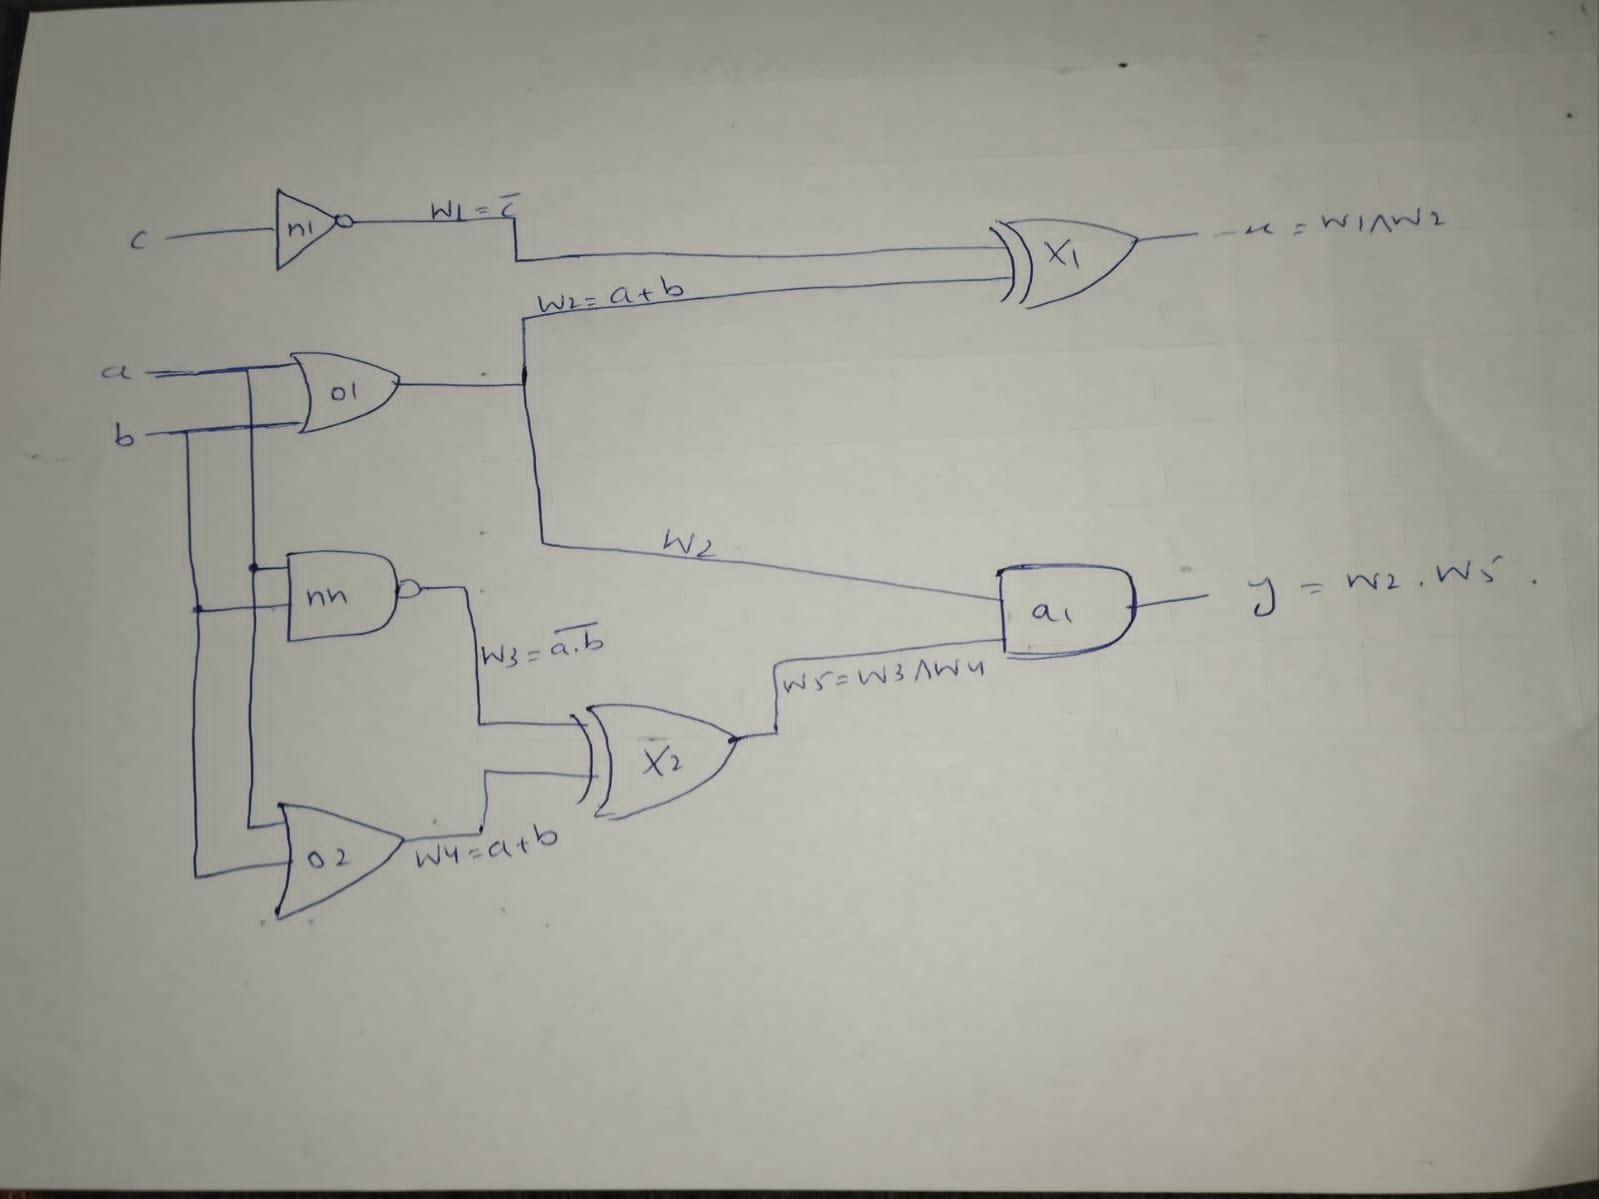 c
n1
W1 = c̅
X1
x = W1∧W2
W2 = a+b
a
b
01
W2
nn
W3 = a͞.͞b͞
a1
y = W2 . W5 .
W5 = W3∧W4
X2
02
W4 = a+b